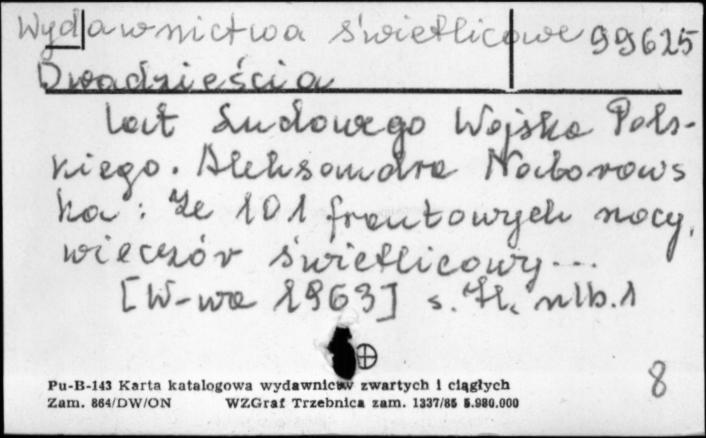 Wydawnictwa świetlicowe 99625
Dwadzieścia
lat Ludowego Wojska Pols-
kiego. Aleksandra Naborows
ka: Ze 101 frontowych nocy,
wieczór świetlicowy...
[W-wa 1963] s. nlb. 1
Pu-B-143 Karta katalogowa wydawnictw zwartych i ciągłych
Zam. 864/DW/ON WZGraf Trzebnica zam. 1337/85 5.980.000
8